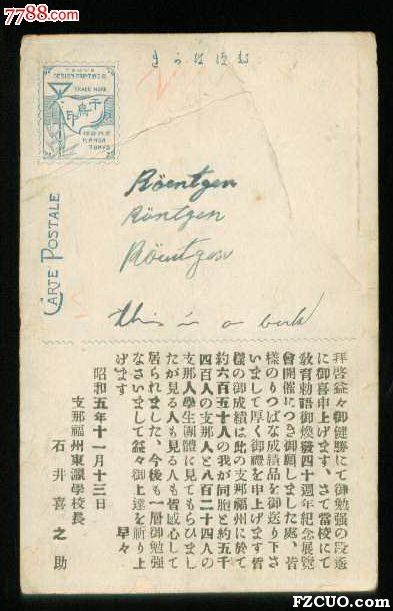 7788.com
きが便郵
TRADE MARK
千鳥印
KANDA
TOKYO
CARTE POSTALE
Röentgen
Röntgen
Röentgen
this is a book
拝啓益々御健勝にて御勉強の段慶
に御喜申上げます、さて當校にて
敎育勅語御煥發四十週年紀念展覽
會開催につき御願しました處、皆
樣のりつぱな成績品を御送り下さ
いまして厚く御禮を申上げます皆
樣の御成績は此の支那福州に於て
約六百五十人の我が同胞と約五千
四百人の支那人と八百二十四人の
支那人學生團體に見てもらひまし
たが見る人も見る人も皆感心して
居られました、今後も一層御勉強
なさいまして益々御上達を祈り上
げます
早々
昭和五年十一月十三日
支那福州東瀛學校長
石井喜之助
FZCUO.com